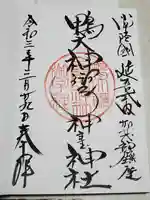 常陸國 延喜式内 鎮座
鴨大神御子神主玉神社
令和三年三月 日 奉拝